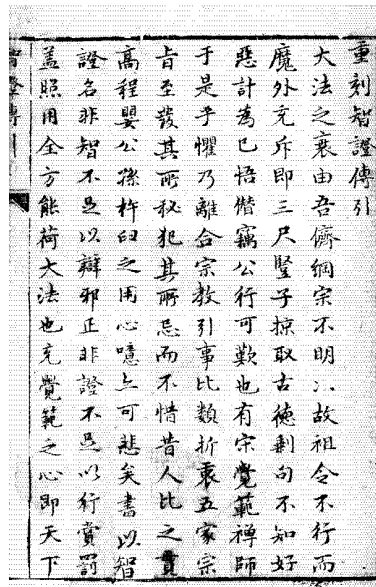 重刻智證傳引
大法之衰由吾儕綱宗不明以故祖令不行而
魔外充斥即三尺豎子掠取古德剩句不知好
惡計為已悟僭竊公行可歎也有宋覺範禪師
于是乎懼乃離合宗教引事比類折衷五家宗
旨至發其所秘犯其所忌而不惜昔人比之貫
高程嬰公孫杵臼之用心噫亦可悲矣書以智
證名非智不足以辯邪正非證不足以行賞罰
蓋照用全方能荷大法也充覺範之心即天下
智證傳引